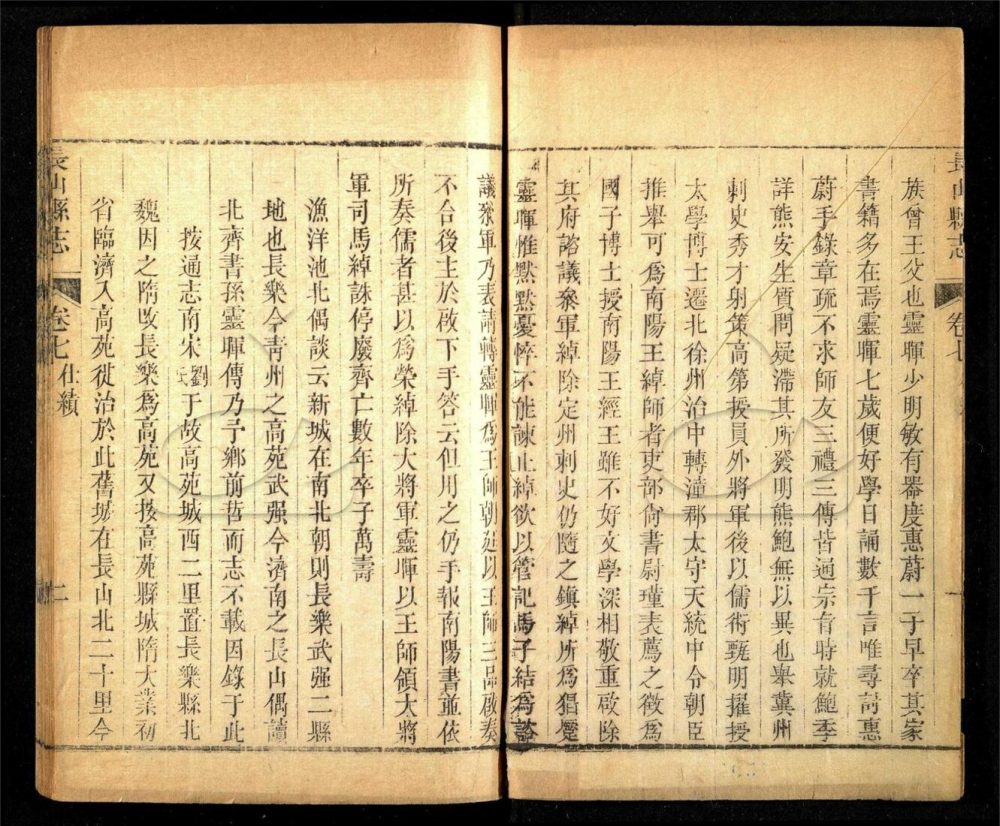 長山縣志
卷七
族曾王父也靈暉少明敏有器度惠蔚一子早卒其家
書籍多在焉靈暉七歲便好學日誦數千言唯尋討惠
蔚手錄章疏不求師友三禮三傳皆通宗旨時就鮑季
詳熊安生質問疑滯其所發明熊鮑無以異也舉冀州
刺史秀才射策高第授員外將軍後以儒術甄明擢授
太學博士遷北徐州治中轉潼郡太守天統中令朝臣
推舉可爲南陽王綽師者吏部尙書尉瑾表薦之徵爲
國子博士授南陽王經王雖不好文學深相敬重啟除
其府諮議叅軍綽除定州刺史仍隨之鎮綽所爲猖蹷
靈暉惟默默憂悴不能諫止綽欲以管記馬子結爲諮
議叅軍乃表請轉靈暉爲王師朝廷以王師三品啟奏
不合後主於啟下手答云但用之仍手報南陽書並依
所奏儒者甚以爲榮綽除大將軍靈暉以王師領大將
軍司馬綽誅停廢齊亡數年卒子萬壽
漁洋池北偶談云新城在南北朝則長樂武强二縣
地也長樂今青州之高苑武强今濟南之長山偶讀
北齊書孫靈暉傳乃予鄉前哲而志不載因錄于此
按通志南宋劉氏于故高苑城西二里置長樂縣北
魏因之隋改長樂爲高苑又按高苑縣城隋大業初
省臨濟入高苑從治於此舊城在長山北二十里今
長山縣志
卷七 仕績
二